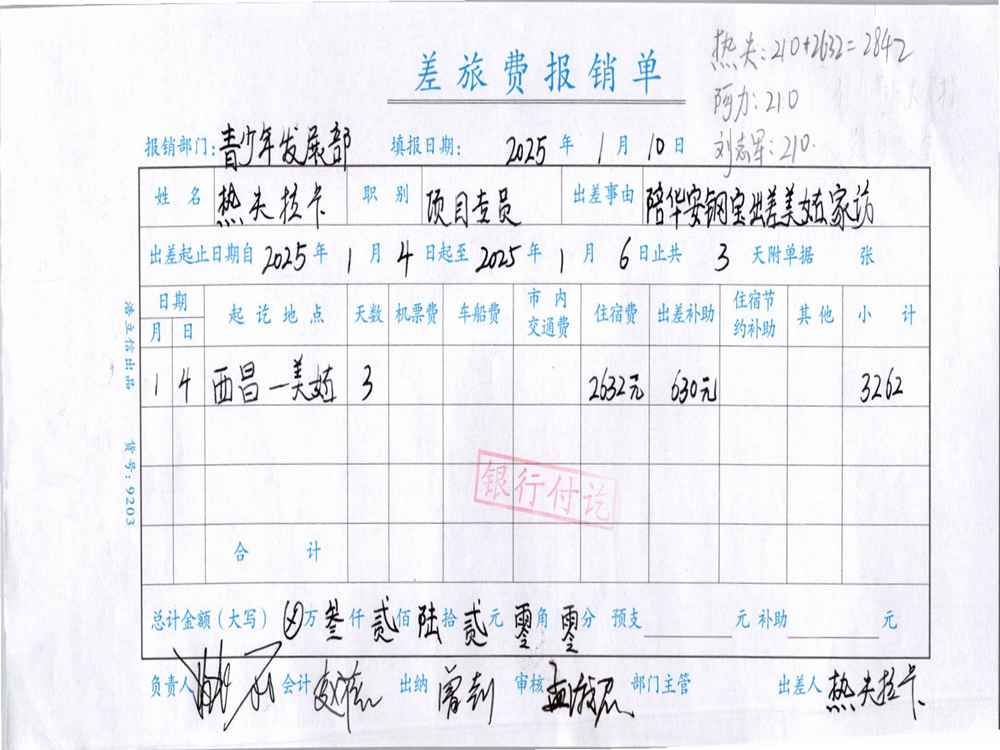 热夫:210+2632=2842
差旅费报销单
阿力:210
刘志军:210.
报销部门:青少年发展部 填报日期: 2025年1月10日
姓名 热夫拉卡 职别 项目专员 出差事由 陪华安钢宝出差美姑家访
出差起止日期自2025年1月4日起至2025年1月6日止共3天附单据 张
日期 起讫地点 天数 机票费 车船费 市内交通费 住宿费 出差补助 住宿节约补助 其他 小计
月 日
1 4 西昌—美姑 3 2632元 630元 3262
银行付讫
合计
总计金额(大写) ⊗万叁仟贰佰陆拾贰元零角零分 预支 元 补助 元
负责人 会计 出纳 审核 部门主管 出差人 热夫拉卡
浩立信出品 货号:9203